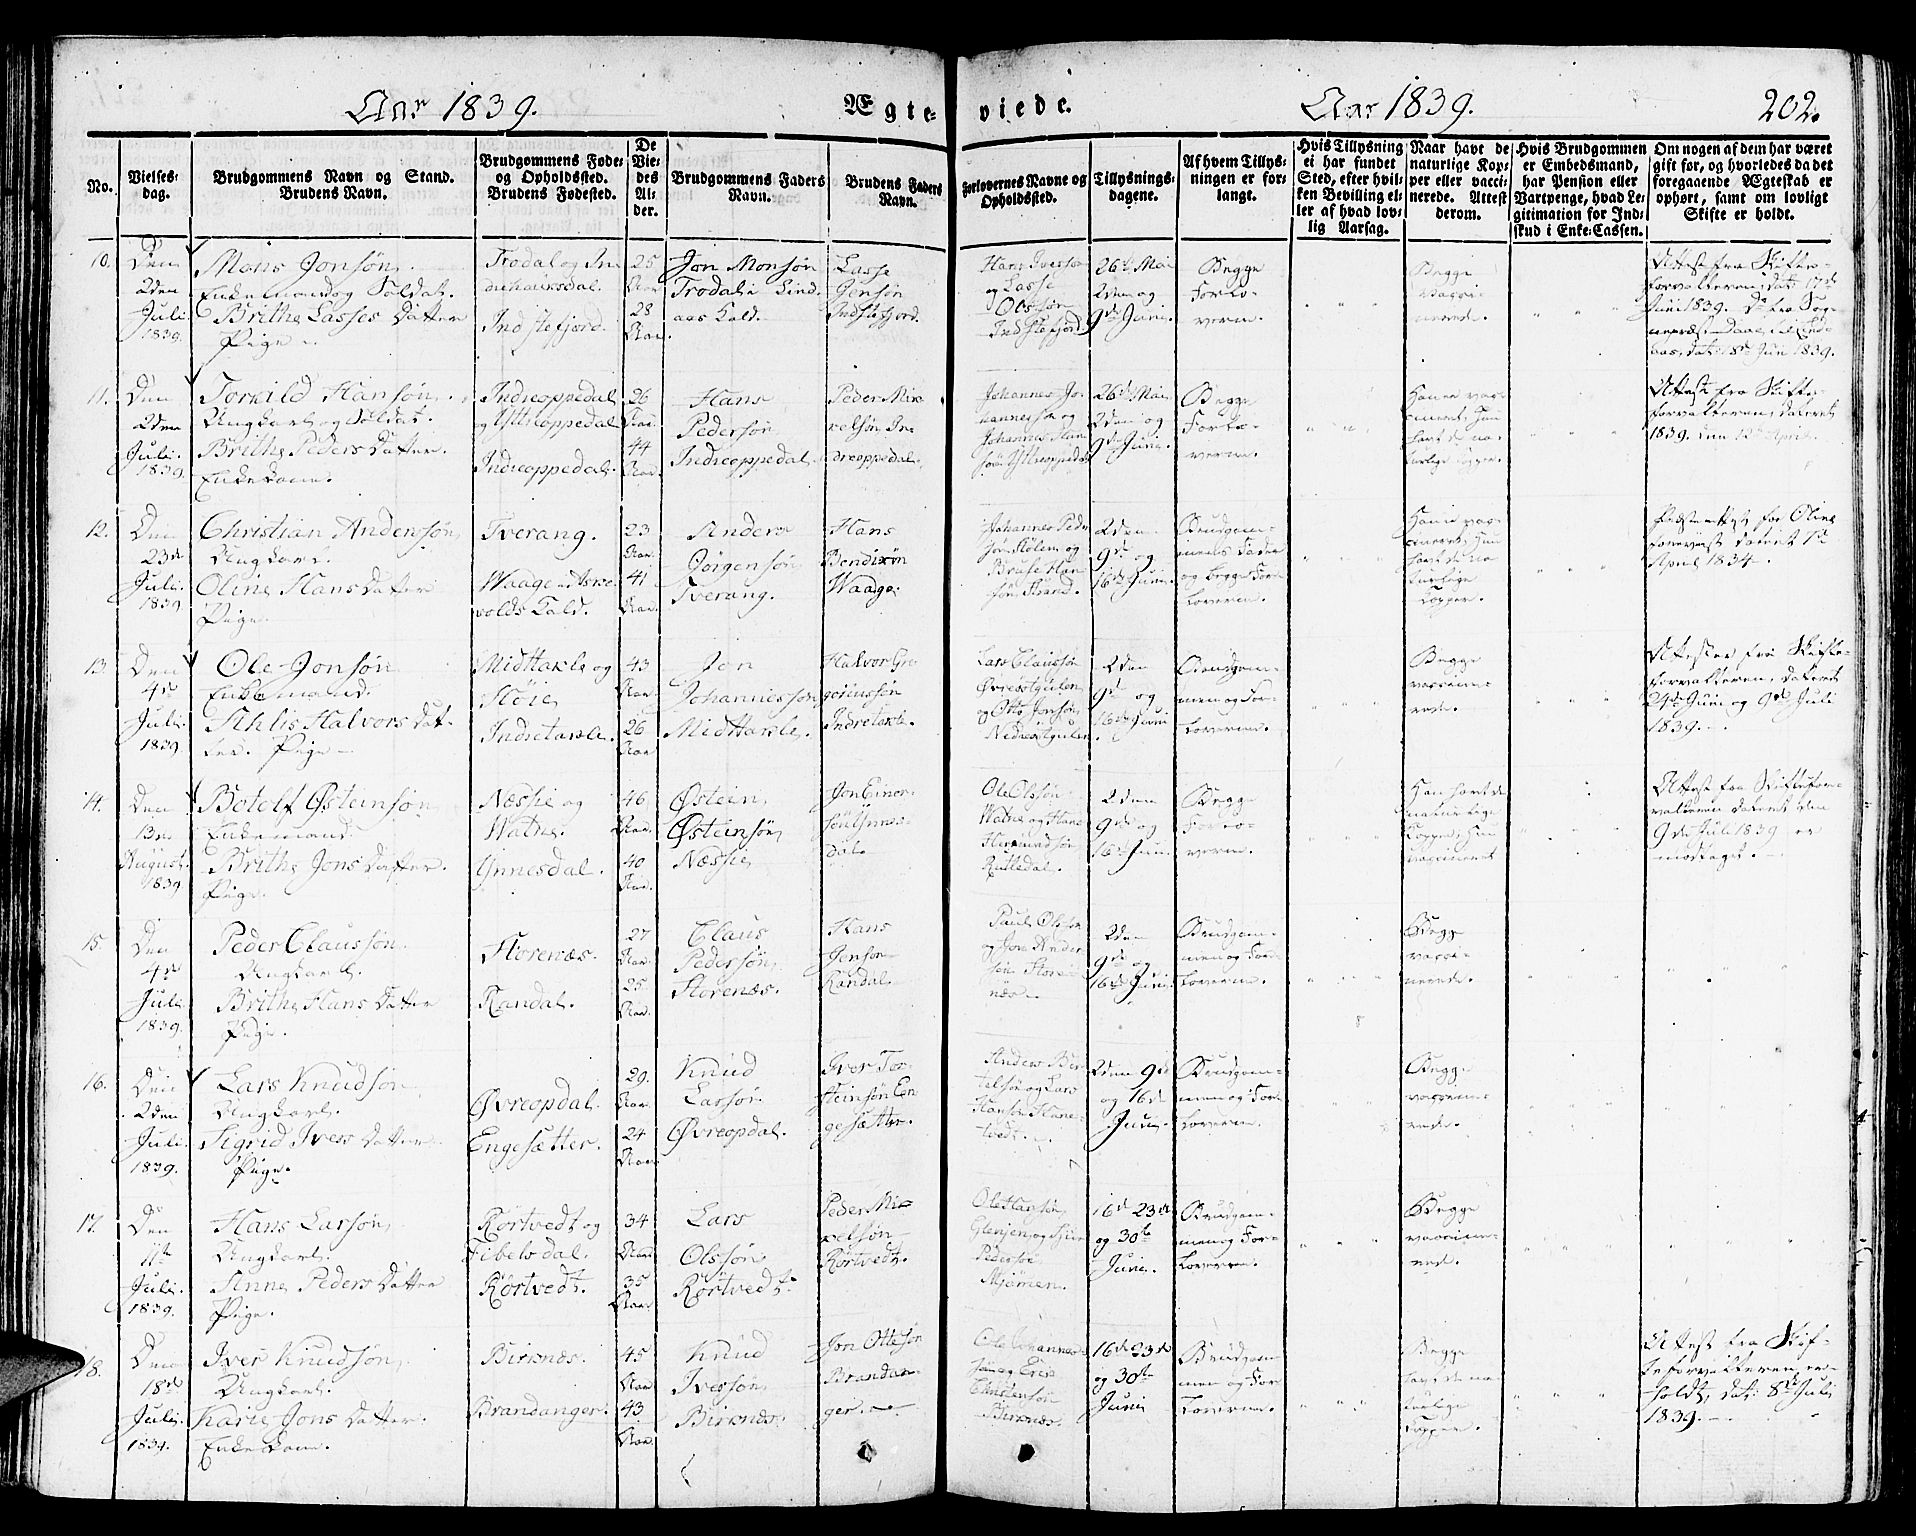 Aar 1839.
Ægteviede.
Aar 1839.
202.
No.
Vielsesdag.
Brudgommens Navn og Stand.
Brudens Navn.
Brudgommens Føde- og Opholdssted.
Brudens Fødested.
De Viedes Alder.
Brudgommens Faders Navn.
Brudens Faders Navn.
Forlovernes Navne og Opholdssted.
Tillysningsdagene.
Af hvem Tillysningen er forlangt.
Hvis Tillysning ei har fundet Sted, efter hvilken Bevilling eller af hvad lovlig Aarsag.
Naar havt de naturlige Kopper eller vaccinerede. Attest derom.
Hvis Brudgommen er Embedsmand, har Pension eller Vartpenge, hvad Legitimation for Indskud i Enke-Cassen.
Om nogen af dem har været gift før, og hvorledes da det foregaaende Ægteskab er ophørt, samt om lovligt Skifte er holdt.
10.
Den 2den Juli 1839.
Mons Jonsøn
Enkemand og Soldat.
Brithe Lasses Datter
Pige
Trodal og In
Indstefjord.
25 Aar
28 Aar
Jon Monsøn
Trodal i Lind
aas Kald.
Lasse
Jensøn
Indstefjord.
Hans Iversø
og Lasse
Olssøn
Indstefjord
26de Mai
2den og
9de Juni.
Begge
Forlo-
verne.
Begge
vacci-
nerede.
Attest fra Skifte-
forvalteren, dat: 17de
Juni 1839. Do fra Sog-
nepræst Daae i Lind-
aas, dat: 18de Jun 1839.
11.
Den 2den Juli 1839
Torkild Hansøn
Ungkarl og Soldat.
Brithe Peders Datter.
Enkekone.
Indreoppedal
og Ytreoppedal
Indreoppedal.
26 Aar
44 Aar
Hans
Pedersøn
Indreoppedal
Peder Mik
kelsøn In
dreoppedal.
Johannes Jo-
hannessøn og
Johannes Han
søn Ytreoppedal
26de Mai
2den og
9de Juni.
Begge
Forlo-
verne.
Han er vac-
cineret, Hun
havt de na-
turlige Kopper.
Attest fra Skifte-
forvalteren, dateret
1839. den 13de April.
12.
Den 23de Juli 1839
Christian Andersøn
Ungkarl.
Oline Hans Datter
Pige.
Tverang.
Waage i Aske
volds Kald.
23 Aar.
41 Aar.
Anders
Jørgensøn
Tverang.
Hans
Bendixøn
Waage.
Johannes Peder
søn Hølem og
Brüse Han
søn Strand.
2den
9de og
16de Juni.
Brudgom-
mens Fader
og begge For-
loverne.
Han er vac-
cineret, Hun
havt de na-
turlige
Kopper.
Præsteattest for Oline
dateret 1ste
April 1834.
13.
Den 4de Juli 1839
Ole Jonsøn
Enkemand.
Ahlis Halvors Dat-
ter. Pige
Midttakle og
Høie
Indretakle.
43 Aar
26 Aar
Jon
Johannessøn
Midttakle.
Halvor Gre
goriussøn
Indretakle.
Lars Claussøn
Øvrebøtgulen
og Otto Jensøn
2den
9de og
16de Juni.
Brudgom-
men og For-
loverne.
Begge
vaccine-
rede.
Attester fra Skifte-
forvalteren, dateret
24de Juni og 9de Juli
1839.
14.
Den 13de August 1839
Botolf Østeinsøn
Enkemand.
Brithe Jons Datter.
Pige.
Næssie og
Watne.
Ynnesdal.
46 Aar.
40 Aar.
Østein
Østeinsøn
Næssie
Jon Einer-
søn Ynnes-
dal
Ole Olssøn
Watne og Hans
Hermundsøn
Rutledal.
2den
9de og
16de Juni.
Begge
Forlo-
verne.
Han havt de
naturlige
Kopper, Hun
vaccineret
Attest fra Skiftefor-
valteren dateret den
9de Juli 1839 er
modtaget.
15.
Den 4de Juli 1839.
Peder Claussøn
Ungkarl.
Brithe Hans Datter
Pige.
Storenæs.
Randal.
27 Aar
25 Aar.
Claus
Pedersøn
Storenæs.
Hans
Jensøn
Randal
Paul Olssøn
og Jon Ander
søn Store
næs
2den
9de og
16de Juni.
Brudgom-
men og For-
loverne.
Begge
vacci-
nerede.
16.
Den 2den Juli 1839.
Lars Knudsøn
Ungkarl.
Sigrid Ivers Datter
Pige.
Øvreopdal.
Engesætter.
29 Aar.
24 Aar
Knud
Larssøn
Øvreopdal.
Iver Tor-
steinsøn En
gesætter.
Anders Ber
telsøn og Lars
Hansøn Hane-
tvedt.
2den 9de
og 16de
Juni.
Brudgom-
men og For-
loverne.
Begge
vaccine-
rede.
17.
Den 11te Juli 1839.
Hans Larsøn
Ungkarl.
Anne Peders Datter
Pige.
Rörtvedt og
Fibelsdal.
Rörtvedt
34 Aar
35 Aar.
Lars
Olssøn
Rörtvedt.
Peder Mik
kelsøn
Rörtvedt.
Ole Hansøn
Glenjen og Siur
Pedersøn
Mjömen.
16de 23de
og 30te
Juni.
Brudgom-
men og For-
loverne.
Begge
vaccine-
rede.
18.
Den 18de Juli 1839.
Iver Knudsøn
Ungkarl.
Karie Jons Datter
Enkekone.
Birknæs.
Brandanger.
45 Aar
43 Aar.
Knud
Iversøn
Birknæs.
Jon Ottesøn
Brandan-
ger.
Ole Johannes-
søn og Erik
Christensøn
Birknæs.
16de 23de
og 30te
Juni
Brudgom-
men og For-
loverne.
Begge
havt de na-
turlige
Kopper.
Attest fra Skif-
teforvalteren er
holdt, dat: 8de Juli
1839.